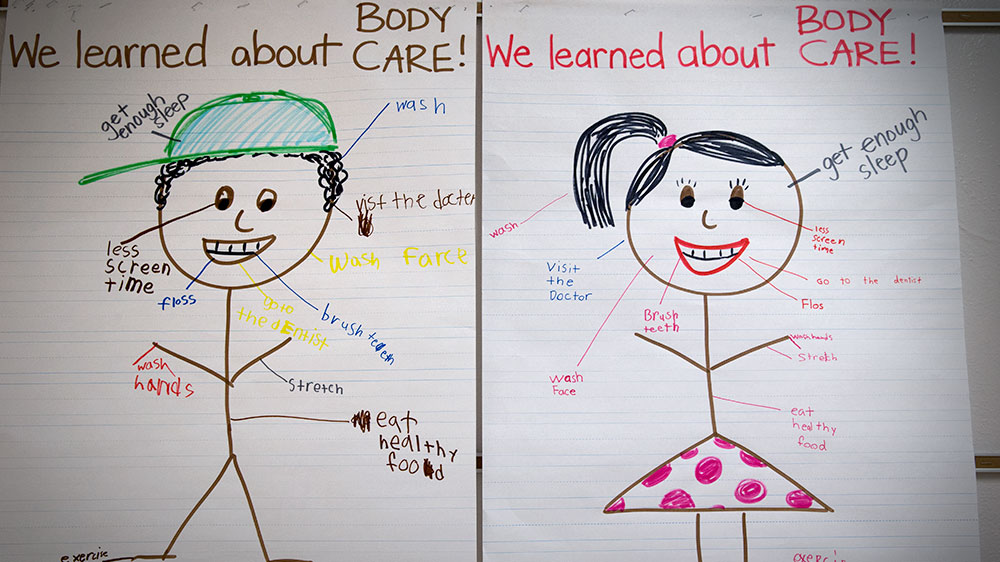 We learned about BODY
CARE!
get
enough
sleep
wash
vist the docter
less
screen
time
wash Farce
floss
go to
the dentist
brush teeth
wash
hands
stretch
eat
healthy
food
exercise
We learned about BODY
CARE!
get enough
sleep
wash
less
screen
time
Visit
the
Doctor
Go to the dentist
Flos
Brush
teeth
wash hands
Stretch
Wash
Face
eat
healthy
food